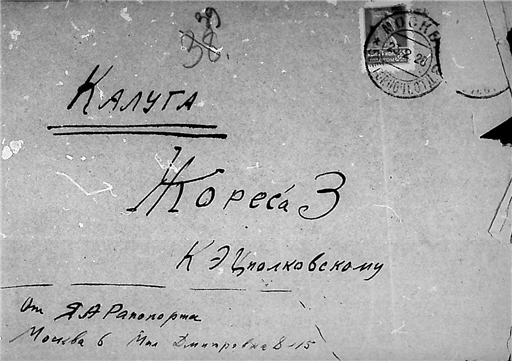 39
38.
МОСКВА
Калуга
Жореса 3
К Э Циолковскому
От Я А Рапопорта
Москва 6 Мал Дмитровка 8-15